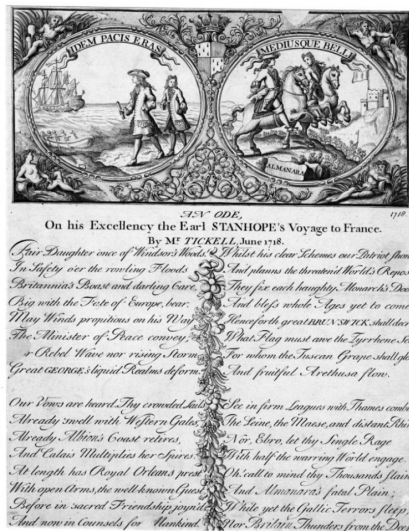 IDEM PACIS ERAS
MEDIUSQUE BELLI
ALMANARA
AN ODE,
1718
On his Excellency the Earl STANHOPE's Voyage to France.
By Mr TICKELL, June 1718.
Fair Daughter once of Windsor's Woods!
In Safety o'er the rowling Floods
Britannia's Boast and darling Care,
Big with the Fate of Europe, bear.
May Winds propitious on his Way
The Minister of Peace convey;
Nor Rebel Wave nor rising Storm
Great GEORGE's liquid Realms deform.
Our Vows are heard. Thy crowded Sails
Already swell with Western Gales;
Already Albion's Coast retires,
And Calais Multiplies her Spires:
At length has Royal Orleans prest
With open Arms, the well-known Guest
Before in sacred Friendship joyn'd
And now in Counsels for Mankind.
Whilst his clear Schemes our Patriot
And planns the threaten'd World's
They fix each haughty Monarch's
And bless whole Ages yet to come
Henceforth great BRUNSWICK shall
What Flag must awe the Tyrrhene
For whom the Tuscan Grape shall
And fruitful Arethusa flow.
See in firm Leagues with Thames
The Seine, the Maese, and distant
Nor, Ebro, let thy Single Rage
With half the warring World engage.
Oh! call to mind thy Thousands slain
And Almanara's fatal Plain;
While yet the Gallic Terrors sleep
Nor Britain Thunders from the